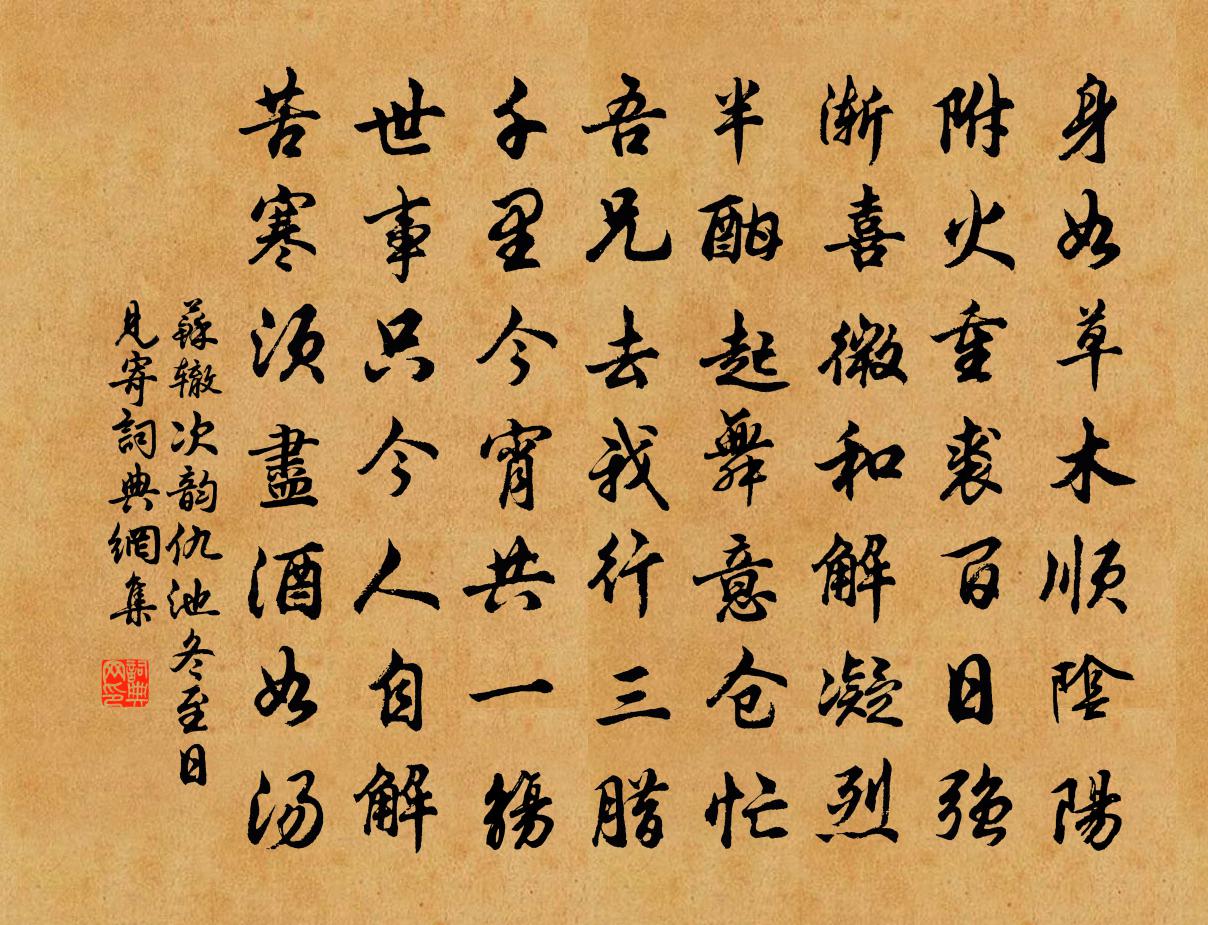 身如草木順陰陽
附火重裘百日強
渐喜微和解凝烈
半酣起舞意仓忙
吾兄去我行三腊
千里今宵共一觞
世事只今人自解
苦寒须盡酒如汤
蘇辙次韵仇池冬至日
見寄詞典網集
詞典
网印